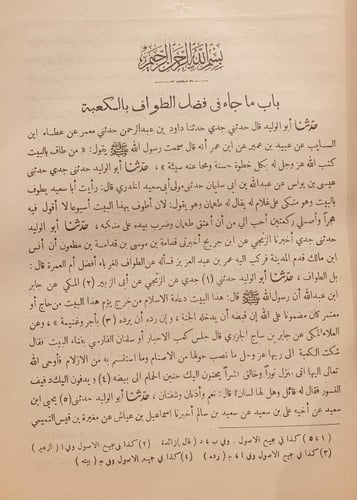 بسم الله الرحمن الرحيم
باب ما جاء فى فضل الطواف بالكعبة
حدثنا أبو الوليد قال حدثني جدي حدثنا داود بن عبدالرحمن حدثني معمر عن عطاء ابن
السايب عن عبيد بن عمير عن ابن عمر أنه قال سمعت رسول الله ﷺ يقول: « من طاف بالبيت
كتب الله عز وجل له بكل خطوة حسنة ومحا عنه سيئة » ، حدثنا أبو الوليد حدثني جدي حدثني
عيسى بن يونس عن عبدالله بن ابى سليمان حدثني مولى أبى سعيد الخدري قال: رأيت أبا سعيد يطوف
بالبيت وهو متكى على غلام له يقال له طهمان وهو يقول: لأن أطوف بهذا البيت أسبوعا لا أقول فيه
هجراً وأصلي ركعتين احب الي من أن أعتق طهمان وضرب بيده على منكبه ، حدثنا أبو الوليد
حدثني جدي أخبرنا الزنجي عن ابن جريج أخبرني قدامة بن موسى بن قدامة بن مظعون أن أنس
ابن مالك قدم المدينة فركب اليه عمر بن عبد العزيز فسأله عن الطواف للغرباء أفضل أم العمرة قال:
بل الطواف ، حدثنا أبو الوليد حدثني (١) جدي عن الزنجي عن أبى الزبير (٢) المكي عن جابر
ابن عبدالله أن رسول الله ﷺ قال: هذا البيت دعامة الاسلام من خرج يؤم هذا البيت من حاج أو
معتمر كان مضمونا على الله إن قبضه أن يدخله الجنة ، وإن رده أن يرده (٣) بأجر وغنيمة » ، وعن
العلاء المكي عن جابر بن ساج الجزري قال جلس كعب الاحبار أو سلمان الفارسي بفناء البيت فقال
شكت الكعبة الى ربها عز وجل ما نصب حولها من الاصنام وما استقسم به من الازلام فأوحى الله
تعالى اليها انى منزل نوراً وخالق بشراً يحنون اليك حنين الحمام الى بيضه (٤) و يدفون اليك دفيف
النسور فقال له قائل وهل لها لسان؟ قال: نعم وأذنان وشفتان ، حدثنا أبو الوليد حدثني (٥) يحيى ابن
سعيد عن أخيه على بن سعيد عن سعيد بن سالم أخبرنا اسماعيل بن عياش عن مغيرة بن قيس التميمي
(١،٥) كذا في جميع الاصول . وفي ب ، د (قال) زائدة (٢) كذا في جميع الاصول وفي ا ( الزهير )
(٣) كذا في جميع الاصول وفي ا، ج (رده) (٤) كذا في جميع الاصول وفي د ( بيته )